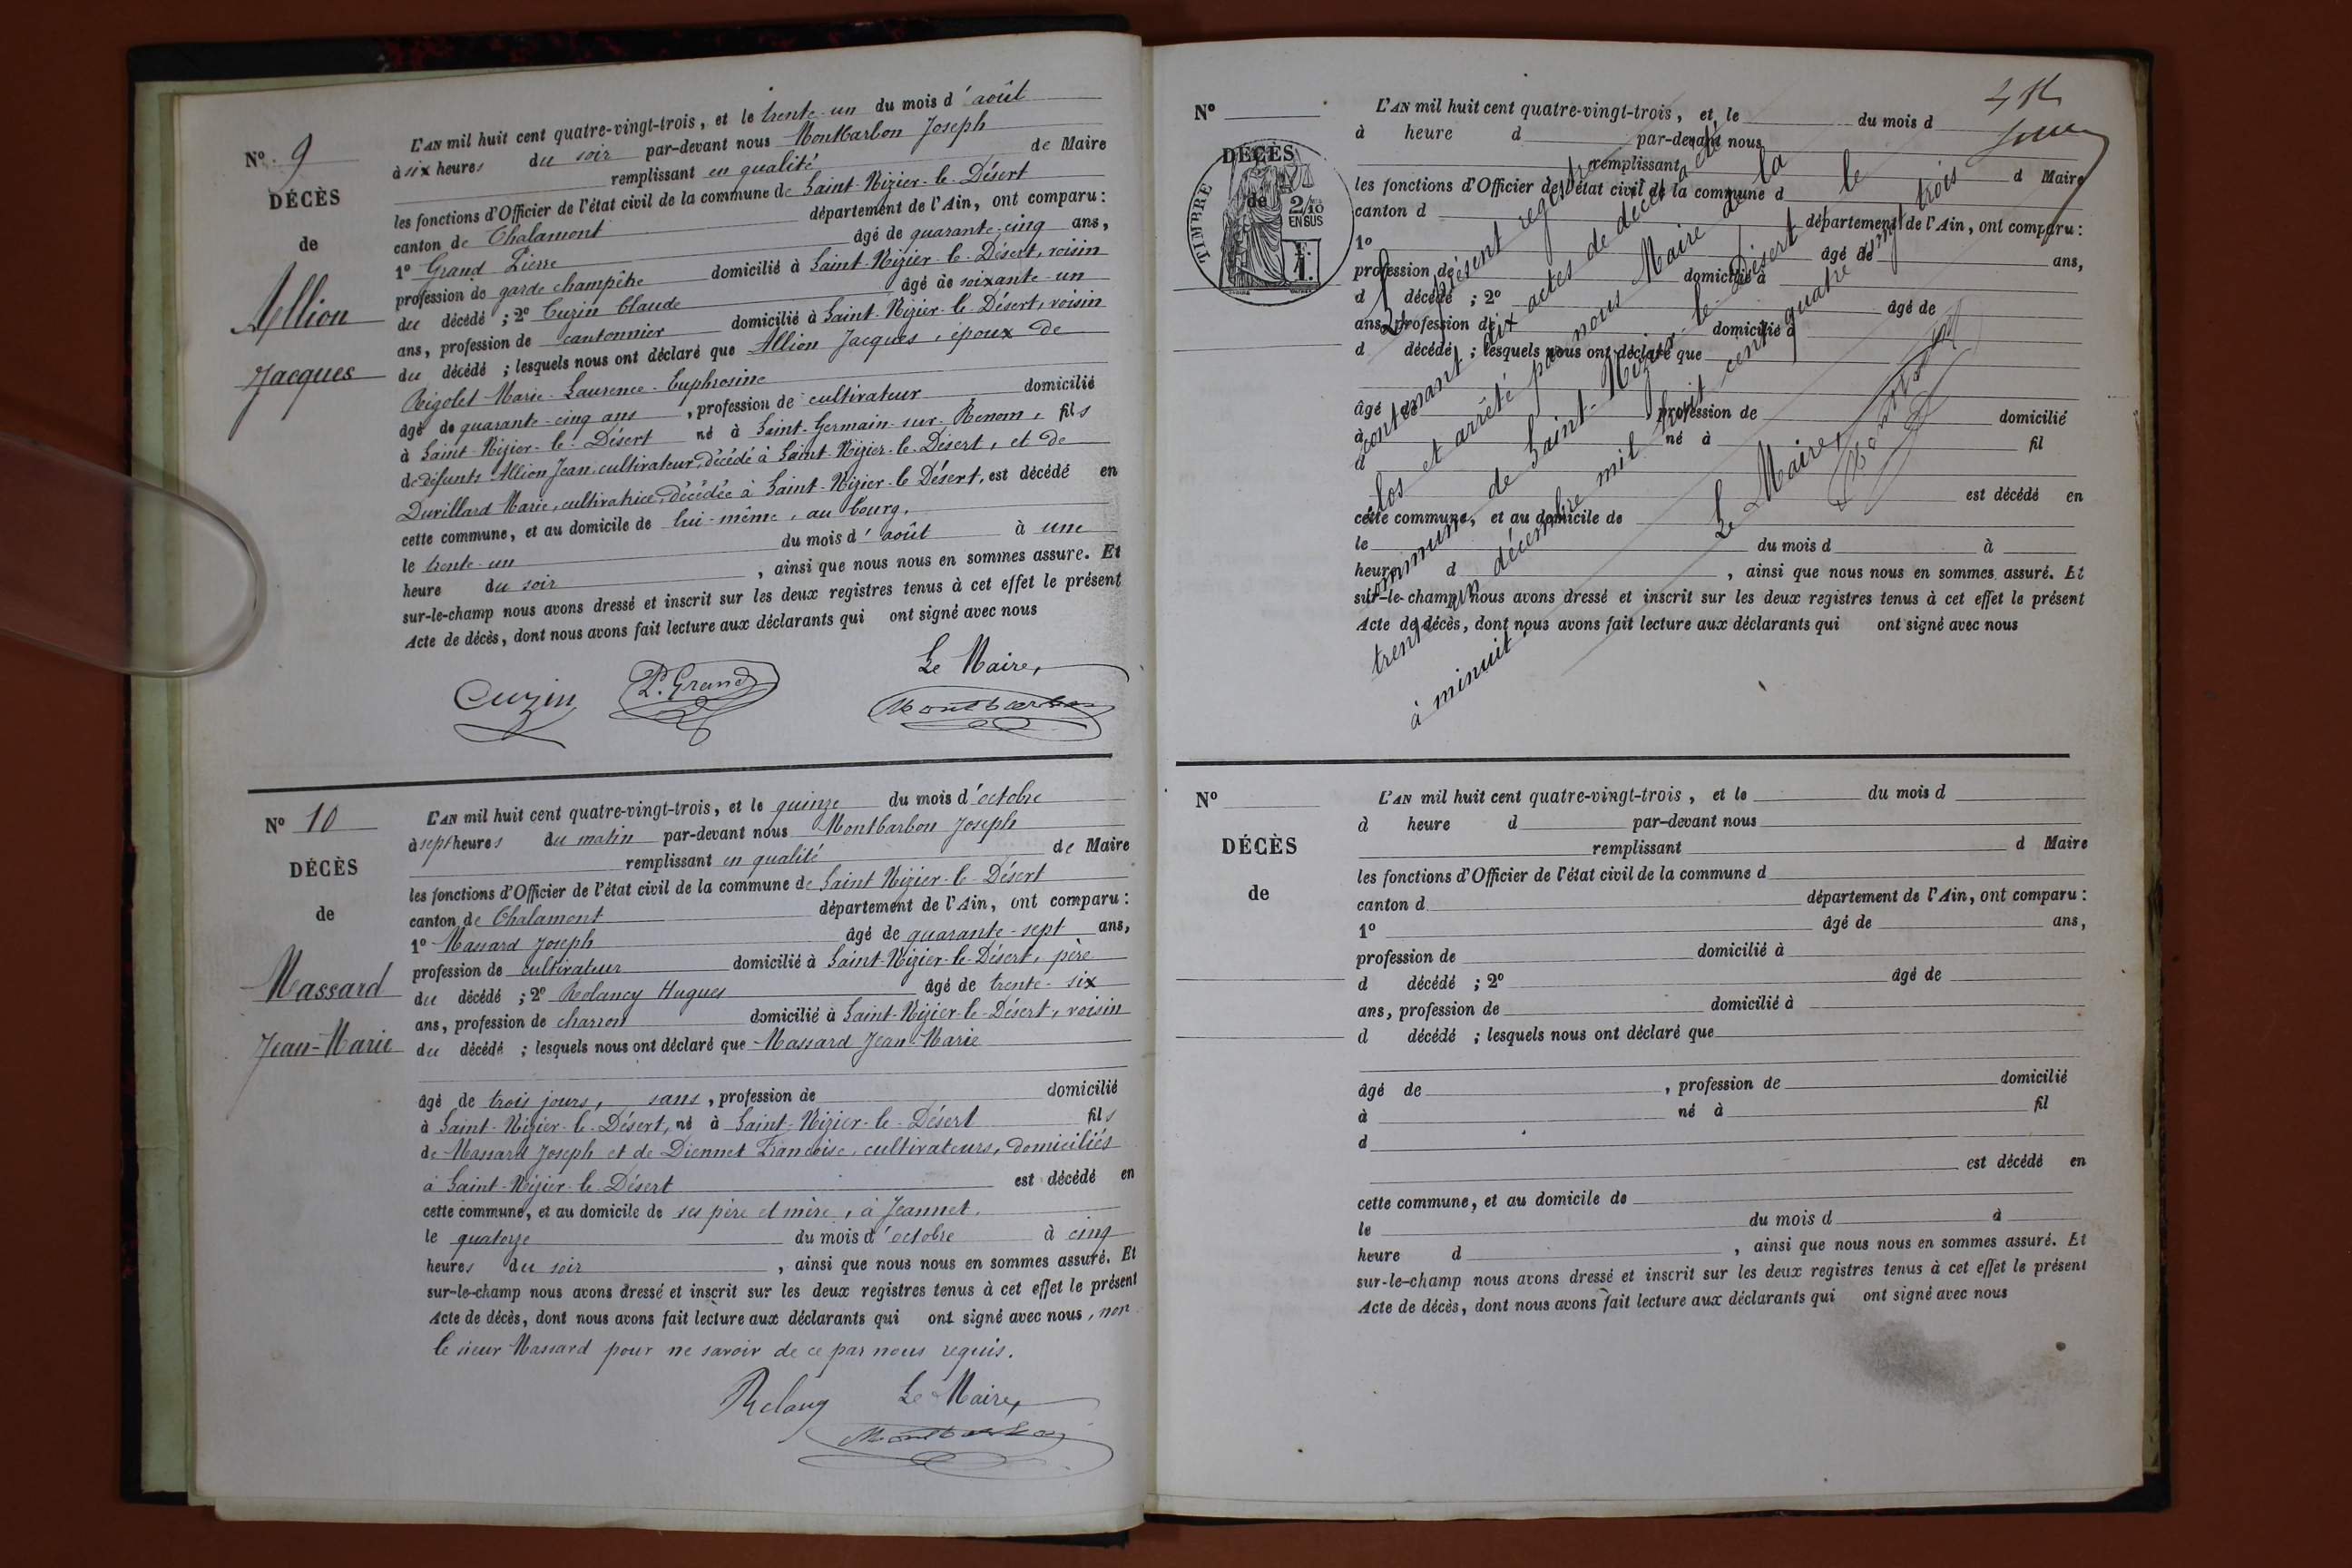 N° 9
DÉCÈS
de
Allion
Jacques
L'AN mil huit cent quatre-vingt-trois, et le trente-un du mois d'août
à six heures du soir par-devant nous Montbarbon Joseph
remplissant en qualité de Maire
les fonctions d'Officier de l'état civil de la commune de Saint-Nizier-le-Désert
canton de Chalamont département de l'Ain, ont comparu:
1° Grand Pierre âgé de quarante-cinq ans,
profession de garde champêtre domicilié à Saint-Nizier-le-Désert, voisin
du décédé ; 2° Cuzin Claude âgé de soixante-un
ans, profession de cantonnier domicilié à Saint-Nizier-le-Désert, voisin
du décédé ; lesquels nous ont déclaré que Allion Jacques, époux de
Rigolet Marie-Laurence-Euphrosine
âgé de quarante-cinq ans, profession de cultivateur domicilié
à Saint-Nizier-le-Désert né à Saint-Germain-sur-Renom, fils
de défunts Allion Jean, cultivateur, décédé à Saint-Nizier-le-Désert, et de
Duvillard Marie, cultivatrice, décédée à Saint-Nizier-le-Désert, est décédé en
cette commune, et au domicile de lui-même, au bourg,
le trente-un du mois d'août à une
heure du soir, ainsi que nous nous en sommes assuré. Et
sur-le-champ nous avons dressé et inscrit sur les deux registres tenus à cet effet le présent
Acte de décès, dont nous avons fait lecture aux déclarants qui ont signé avec nous
Le Maire,
Cuzin P. Grand Montbarbon
N° 10
DÉCÈS
de
Massard
Jean-Marie
L'AN mil huit cent quatre-vingt-trois, et le quinze du mois d'octobre
à sept heures du matin par-devant nous Montbarbon Joseph
remplissant en qualité de Maire
les fonctions d'Officier de l'état civil de la commune de Saint Nizier-le-Désert
canton de Chalamont département de l'Ain, ont comparu:
1° Massard Joseph âgé de quarante-sept ans,
profession de cultivateur domicilié à Saint-Nizier-le-Désert, père
du décédé ; 2° Relancy Hugues âgé de trente-six
ans, profession de charron domicilié à Saint-Nizier-le-Désert, voisin
du décédé ; lesquels nous ont déclaré que Massard Jean-Marie
âgé de trois jours, sans, profession de domicilié
à Saint-Nizier-le-Désert, né à Saint-Nizier-le-Désert fils
de Massard Joseph et de Diennet Françoise, cultivateurs, domiciliés
à Saint-Nizier-le-Désert est décédé en
cette commune, et au domicile de ses père et mère, à Jeannet,
le quatorze du mois d'octobre à cinq
heures du soir, ainsi que nous nous en sommes assuré. Et
sur-le-champ nous avons dressé et inscrit sur les deux registres tenus à cet effet le présent
Acte de décès, dont nous avons fait lecture aux déclarants qui ont signé avec nous, non
le sieur Massard pour ne savoir de ce par nous requis.
Le Maire,
Montbarbon
N°
DÉCÈS
de
TIMBRE
2/10
EN SUS
1 F.
L'AN mil huit cent quatre-vingt-trois, et le du mois d
à heure d par-devant nous
remplissant d Maire
les fonctions d'Officier de l'état civil de la commune d
canton d département de l'Ain, ont comparu:
1° âgé de ans,
profession de domicilié à
d décédé ; 2° âgé de
ans, profession de domicilié à
d décédé ; lesquels nous ont déclaré que
âgé de profession de domicilié
à né à fil
d
est décédé en
cette commune, et au domicile de
le du mois d à
heure d , ainsi que nous nous en sommes assuré. Et
sur-le-champ nous avons dressé et inscrit sur les deux registres tenus à cet effet le présent
Acte de décès, dont nous avons fait lecture aux déclarants qui ont signé avec nous
Le présent registre
contenant dix actes de décès a été
clos et arrêté par nous Maire de la
commune de Saint-Nizier-le-Désert le
trente-un décembre mil huit cent quatre vingt trois
à minuit.
Le Maire,
Montbarbon
N°
DÉCÈS
de
L'AN mil huit cent quatre-vingt-trois, et le du mois d
à heure d par-devant nous
remplissant d Maire
les fonctions d'Officier de l'état civil de la commune d
canton d département de l'Ain, ont comparu:
1° âgé de ans,
profession de domicilié à
d décédé ; 2° âgé de
ans, profession de domicilié à
d décédé ; lesquels nous ont déclaré que
âgé de , profession de domicilié
à né à fil
d
est décédé en
cette commune, et au domicile de
le du mois d à
heure d , ainsi que nous nous en sommes assuré. Et
sur-le-champ nous avons dressé et inscrit sur les deux registres tenus à cet effet le présent
Acte de décès, dont nous avons fait lecture aux déclarants qui ont signé avec nous